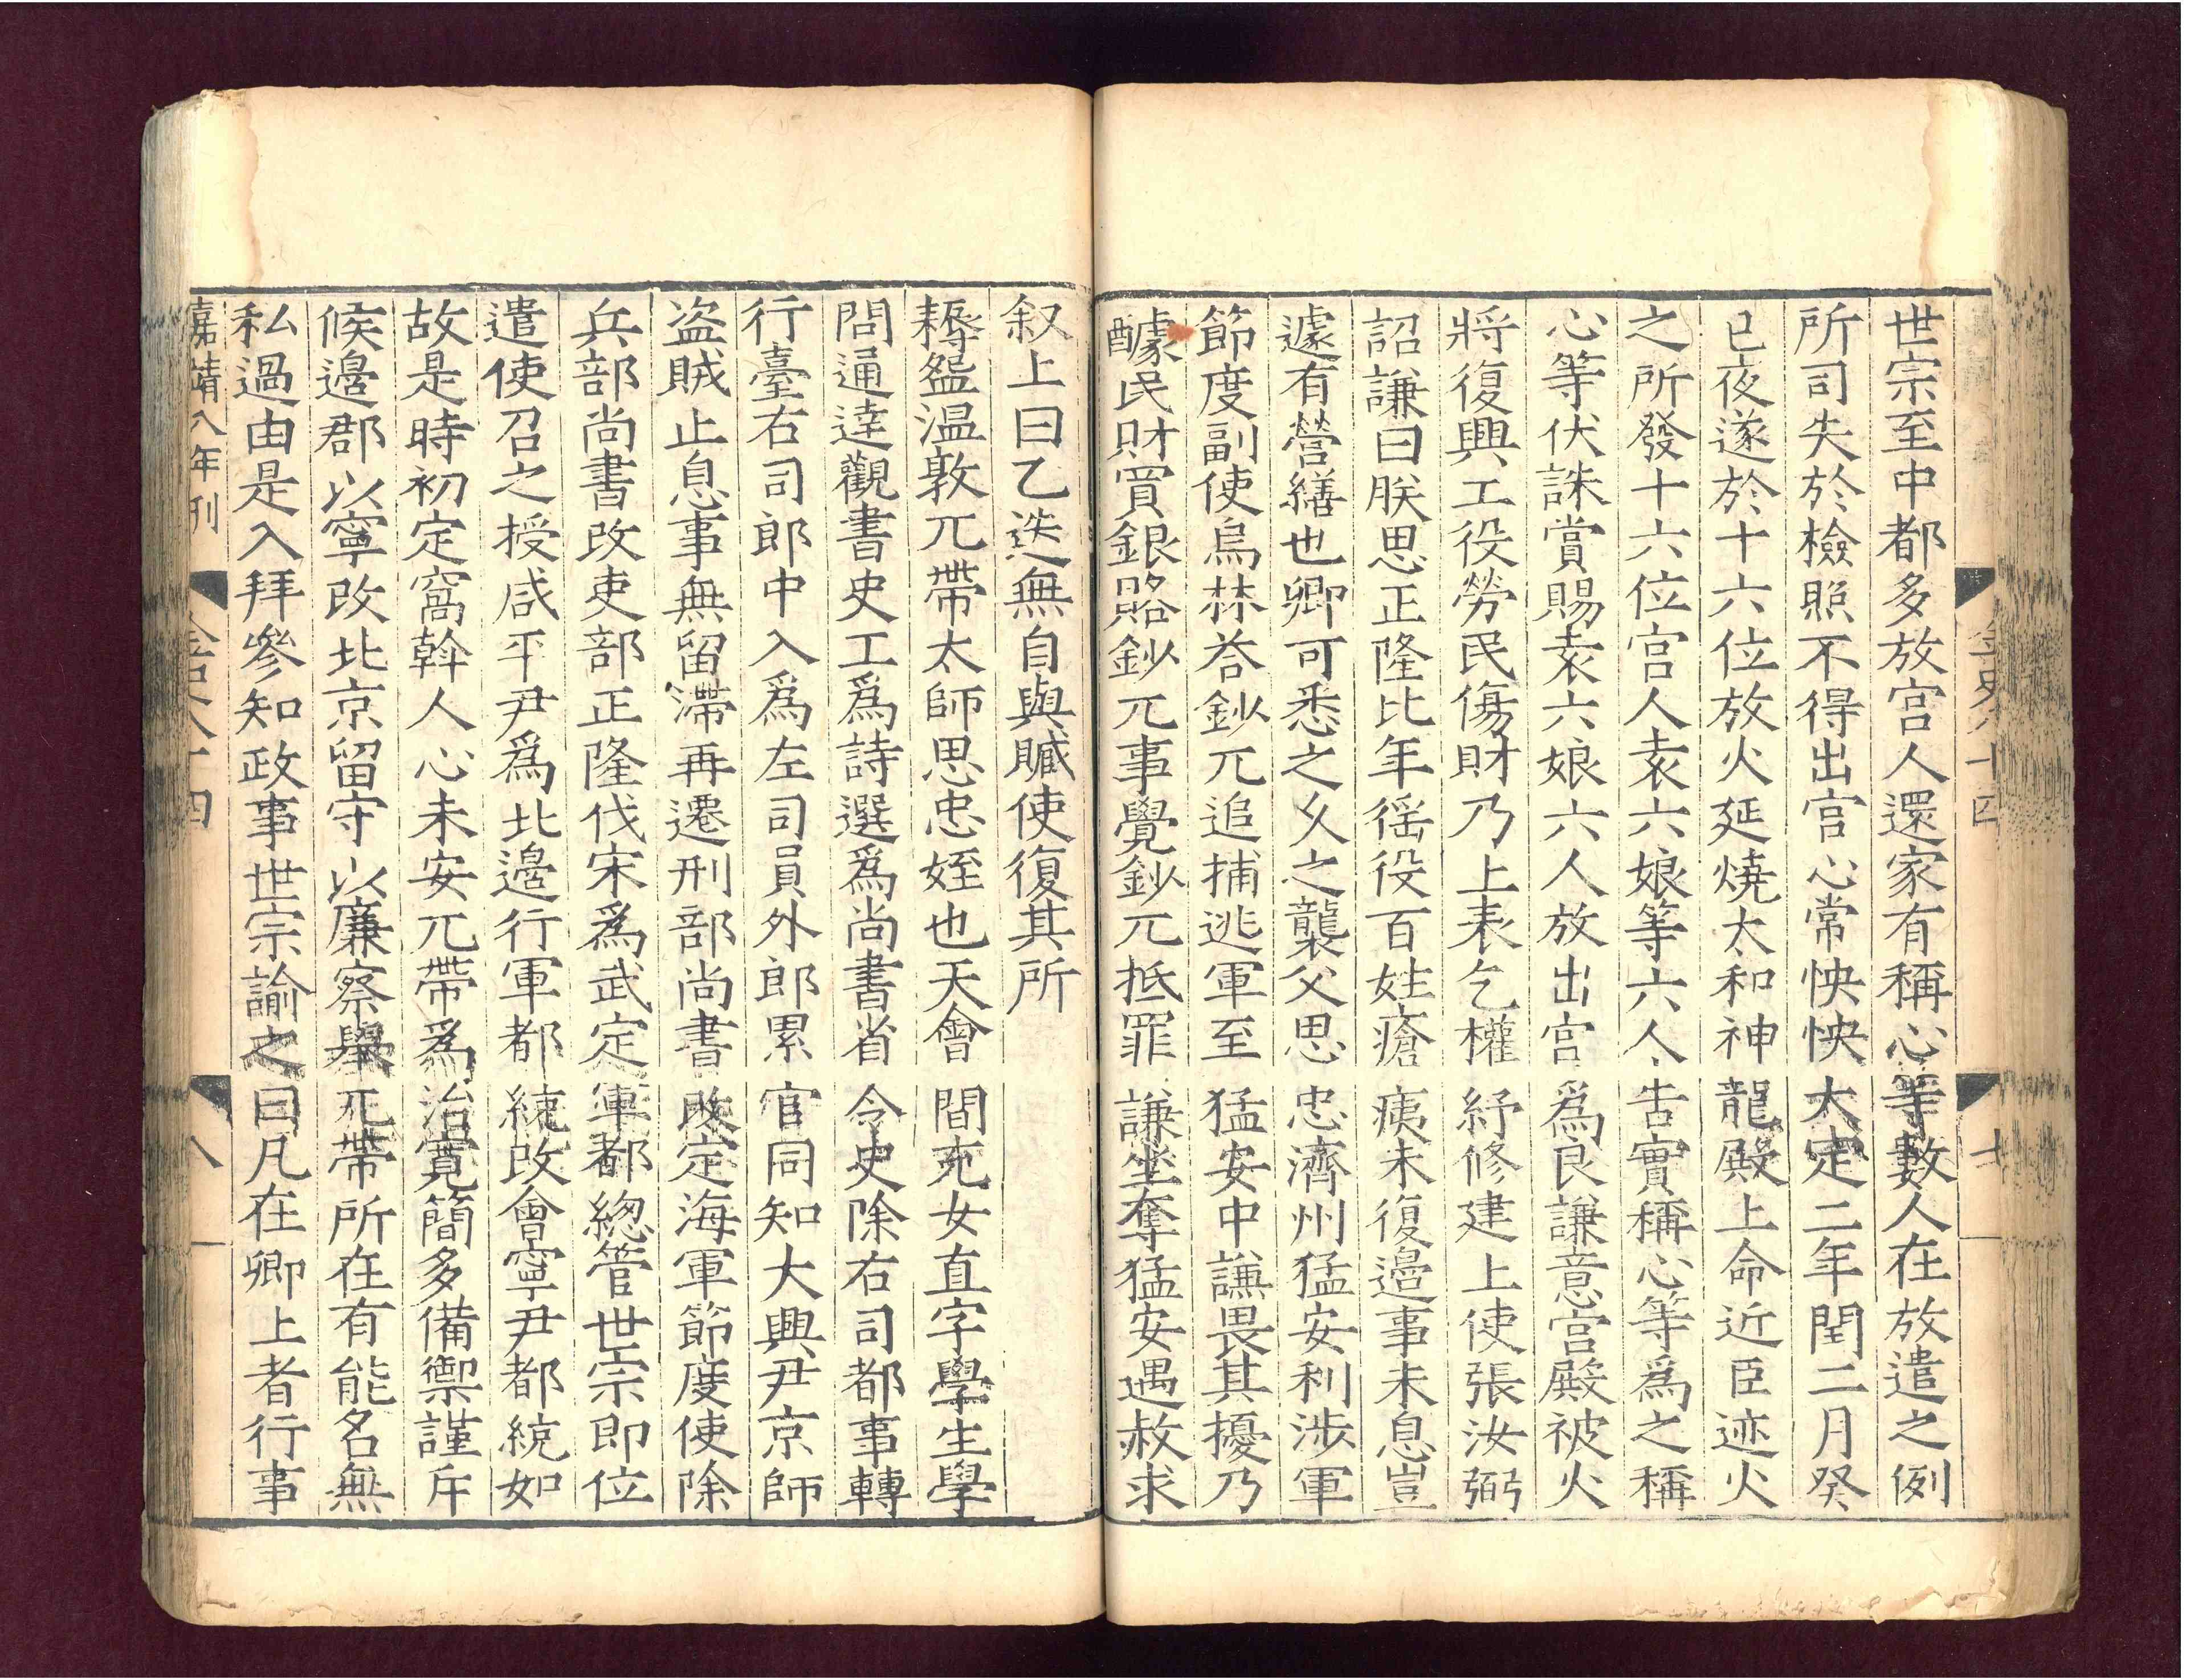 金史八十四
七
世宗至中都多放宮人還家有稱心等數人在放遣之例
所司失於檢照不得出宮心常怏怏大定二年閏二月癸
巳夜遂於十六位放火延燒太和神龍殿上命近臣迹火
之所發十六位宮人袁六娘等六人告實稱心等爲之稱
心等伏誅賞賜袁六娘六人放出宮爲良謙意宮殿被火
將復興工役勞民傷財乃上表乞權紓修建上使張汝弼
詔謙曰朕思正隆比年徭役百姓瘡痍未復邊事未息豈
遽有營繕也卿可悉之久之襲父思忠濟州猛安利涉軍
節度副使烏林荅鈔兀追捕逃軍至猛安中謙畏其擾乃
醵民財買銀賂鈔兀事覺鈔兀抵罪謙坐奪猛安遇赦求
叙上曰乙迭無自與贓使復其所
耨盌温敦兀帶太師思忠姪也天會間充女直字學生學
問通達觀書史工爲詩選爲尚書省令史除右司都事轉
行臺右司郎中入爲左司員外郎累官同知大興尹京師
盗賊止息事無留滯再遷刑部尚書改定海軍節度使除
兵部尚書改吏部正隆伐宋爲武定軍都總管世宗即位
遣使召之授咸平尹爲北邊行軍都統改會寧尹都統如
故是時初定窩斡人心未安兀帶爲治寬簡多備禦謹斥
候邊郡以寧改北京留守以廉察舉兀帶所在有能名無
私過由是入拜參知政事世宗諭之曰凡在卿上者行事
嘉靖八年刊
金史八十四
八